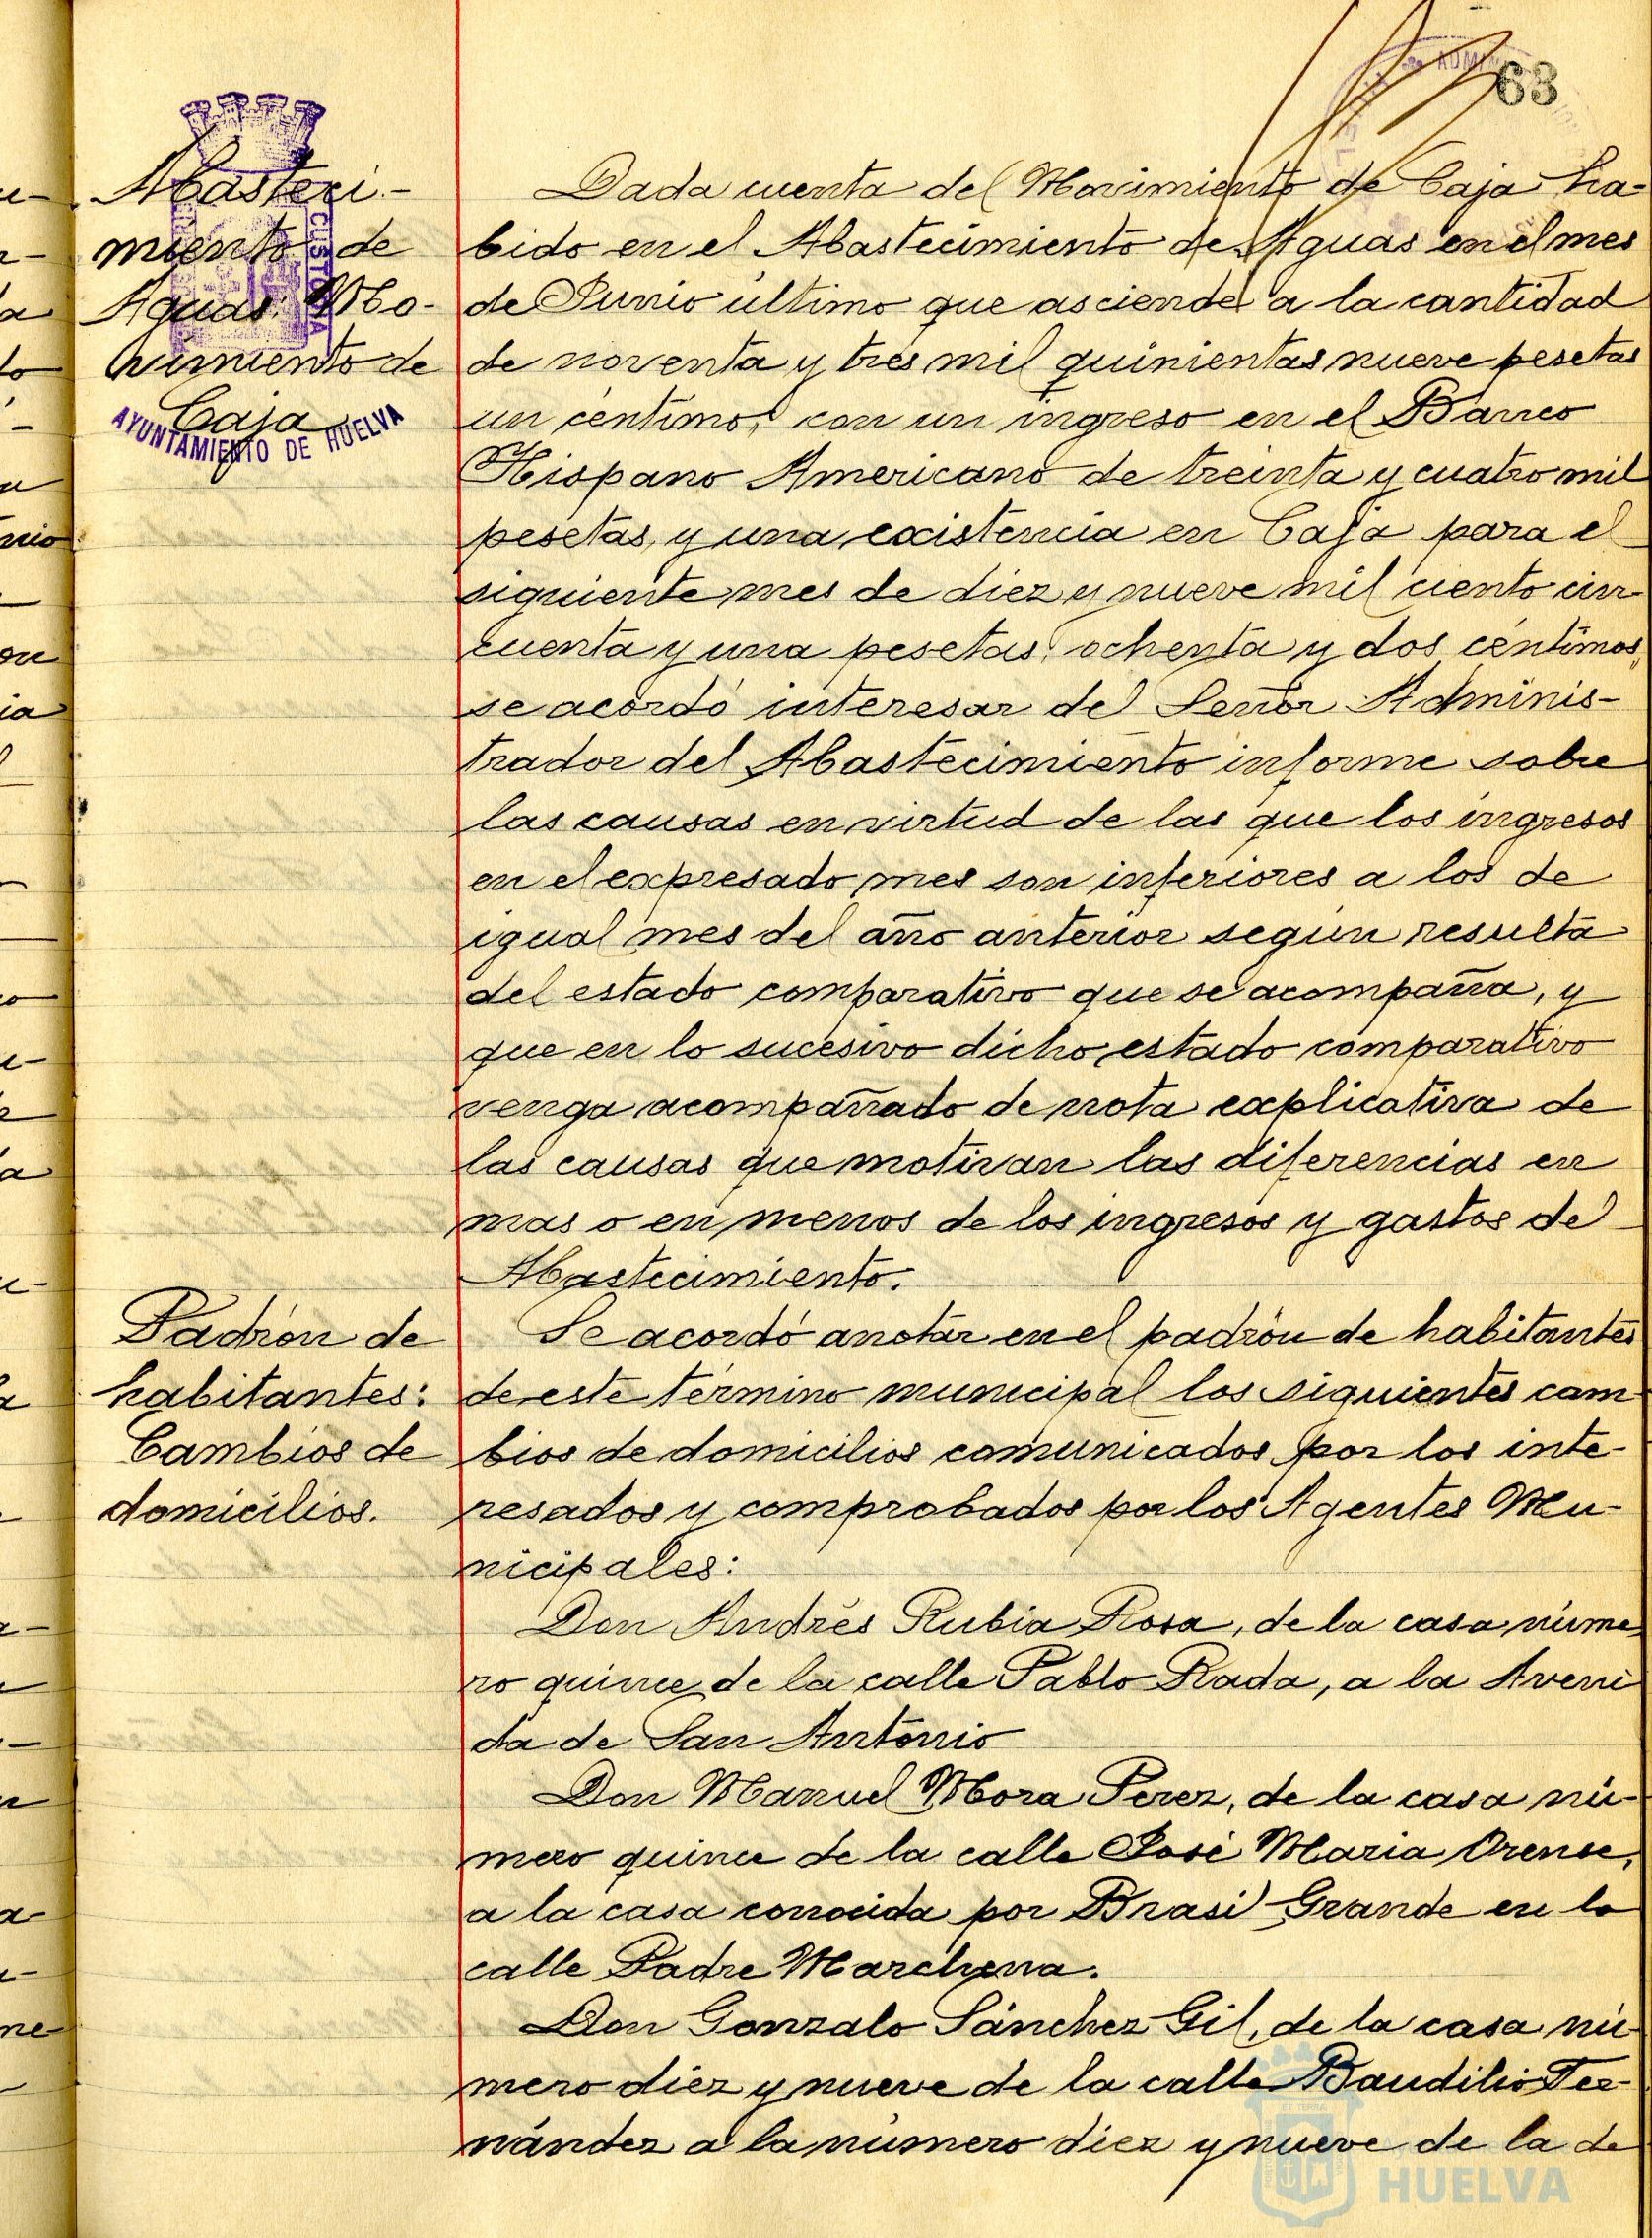 63
Abasteci-
miento de
Aguas: Mo-
vimiento de
Caja
CUSTODIA
AYUNTAMIENTO DE HUELVA
Dada cuenta del Movimiento de Caja ha-
bido en el Abastecimiento de Aguas en el mes
de Junio último que asciende a la cantidad
de noventa y tres mil quinientas nueve pesetas
un céntimo, con un ingreso en el Banco
Hispano Americano de treinta y cuatro mil
pesetas, y una existencia en Caja para el
siguiente mes de diez y nueve mil ciento cin-
cuenta y una pesetas ochenta y dos céntimos,
se acordó interesar del Señor Adminis-
trador del Abastecimiento informe sobre
las causas en virtud de las que los ingresos
en el expresado mes son inferiores a los de
igual mes del año anterior según resulta
del estado comparativo que se acompaña, y
que en lo sucesivo dicho estado comparativo
venga acompañado de nota explicativa de
las causas que motivan las diferencias en
mas o en menos de los ingresos y gastos del
Abastecimiento.
Padrón de
habitantes:
Cambios de
domicilios.
Se acordó anotar en el padrón de habitantes
de este término municipal los siguientes cam
bios de domicilios comunicados por los inte-
resados y comprobados por los Agentes Mu-
nicipales:
Don Andrés Rubia Rosa, de la casa núme
ro quince de la calle Pablo Rada, a la Aveni
da de San Antonio
Don Manuel Mora Perez, de la casa nú-
mero quince de la calle José Maria Orense,
a la casa conocida por Brasil Grande en la
calle Padre Marchena.
Don Gonzalo Sánchez Gil, de la casa nú-
mero diez y nueve de la calle Baudilio Fer-
nández a la número diez y nueve de la de
HUELVA